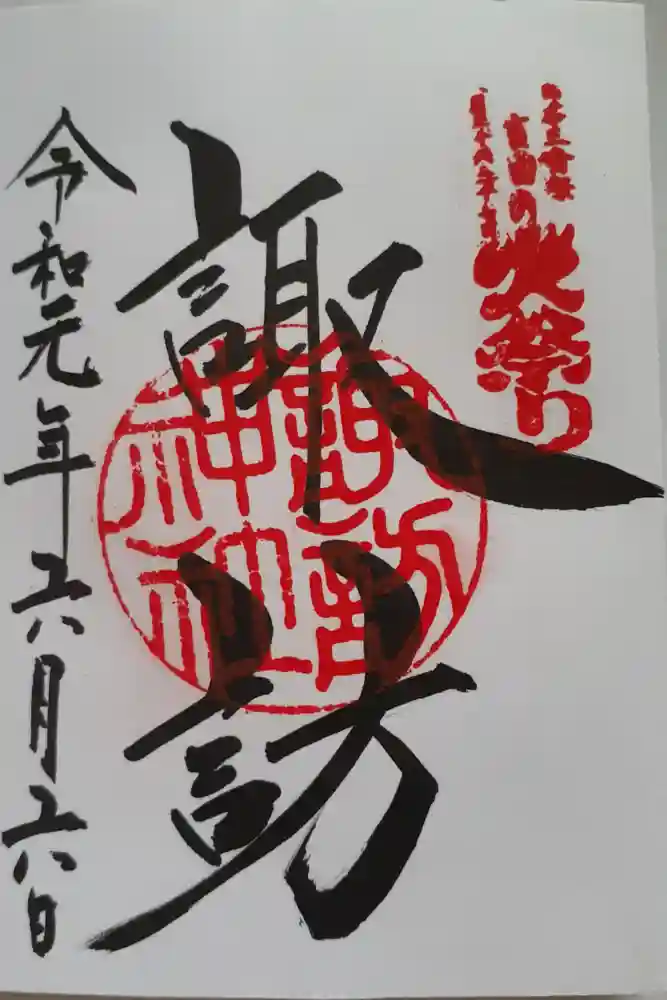 日本三奇祭
吉田の火祭り
諏訪
諏訪神社
令和元年六月六日